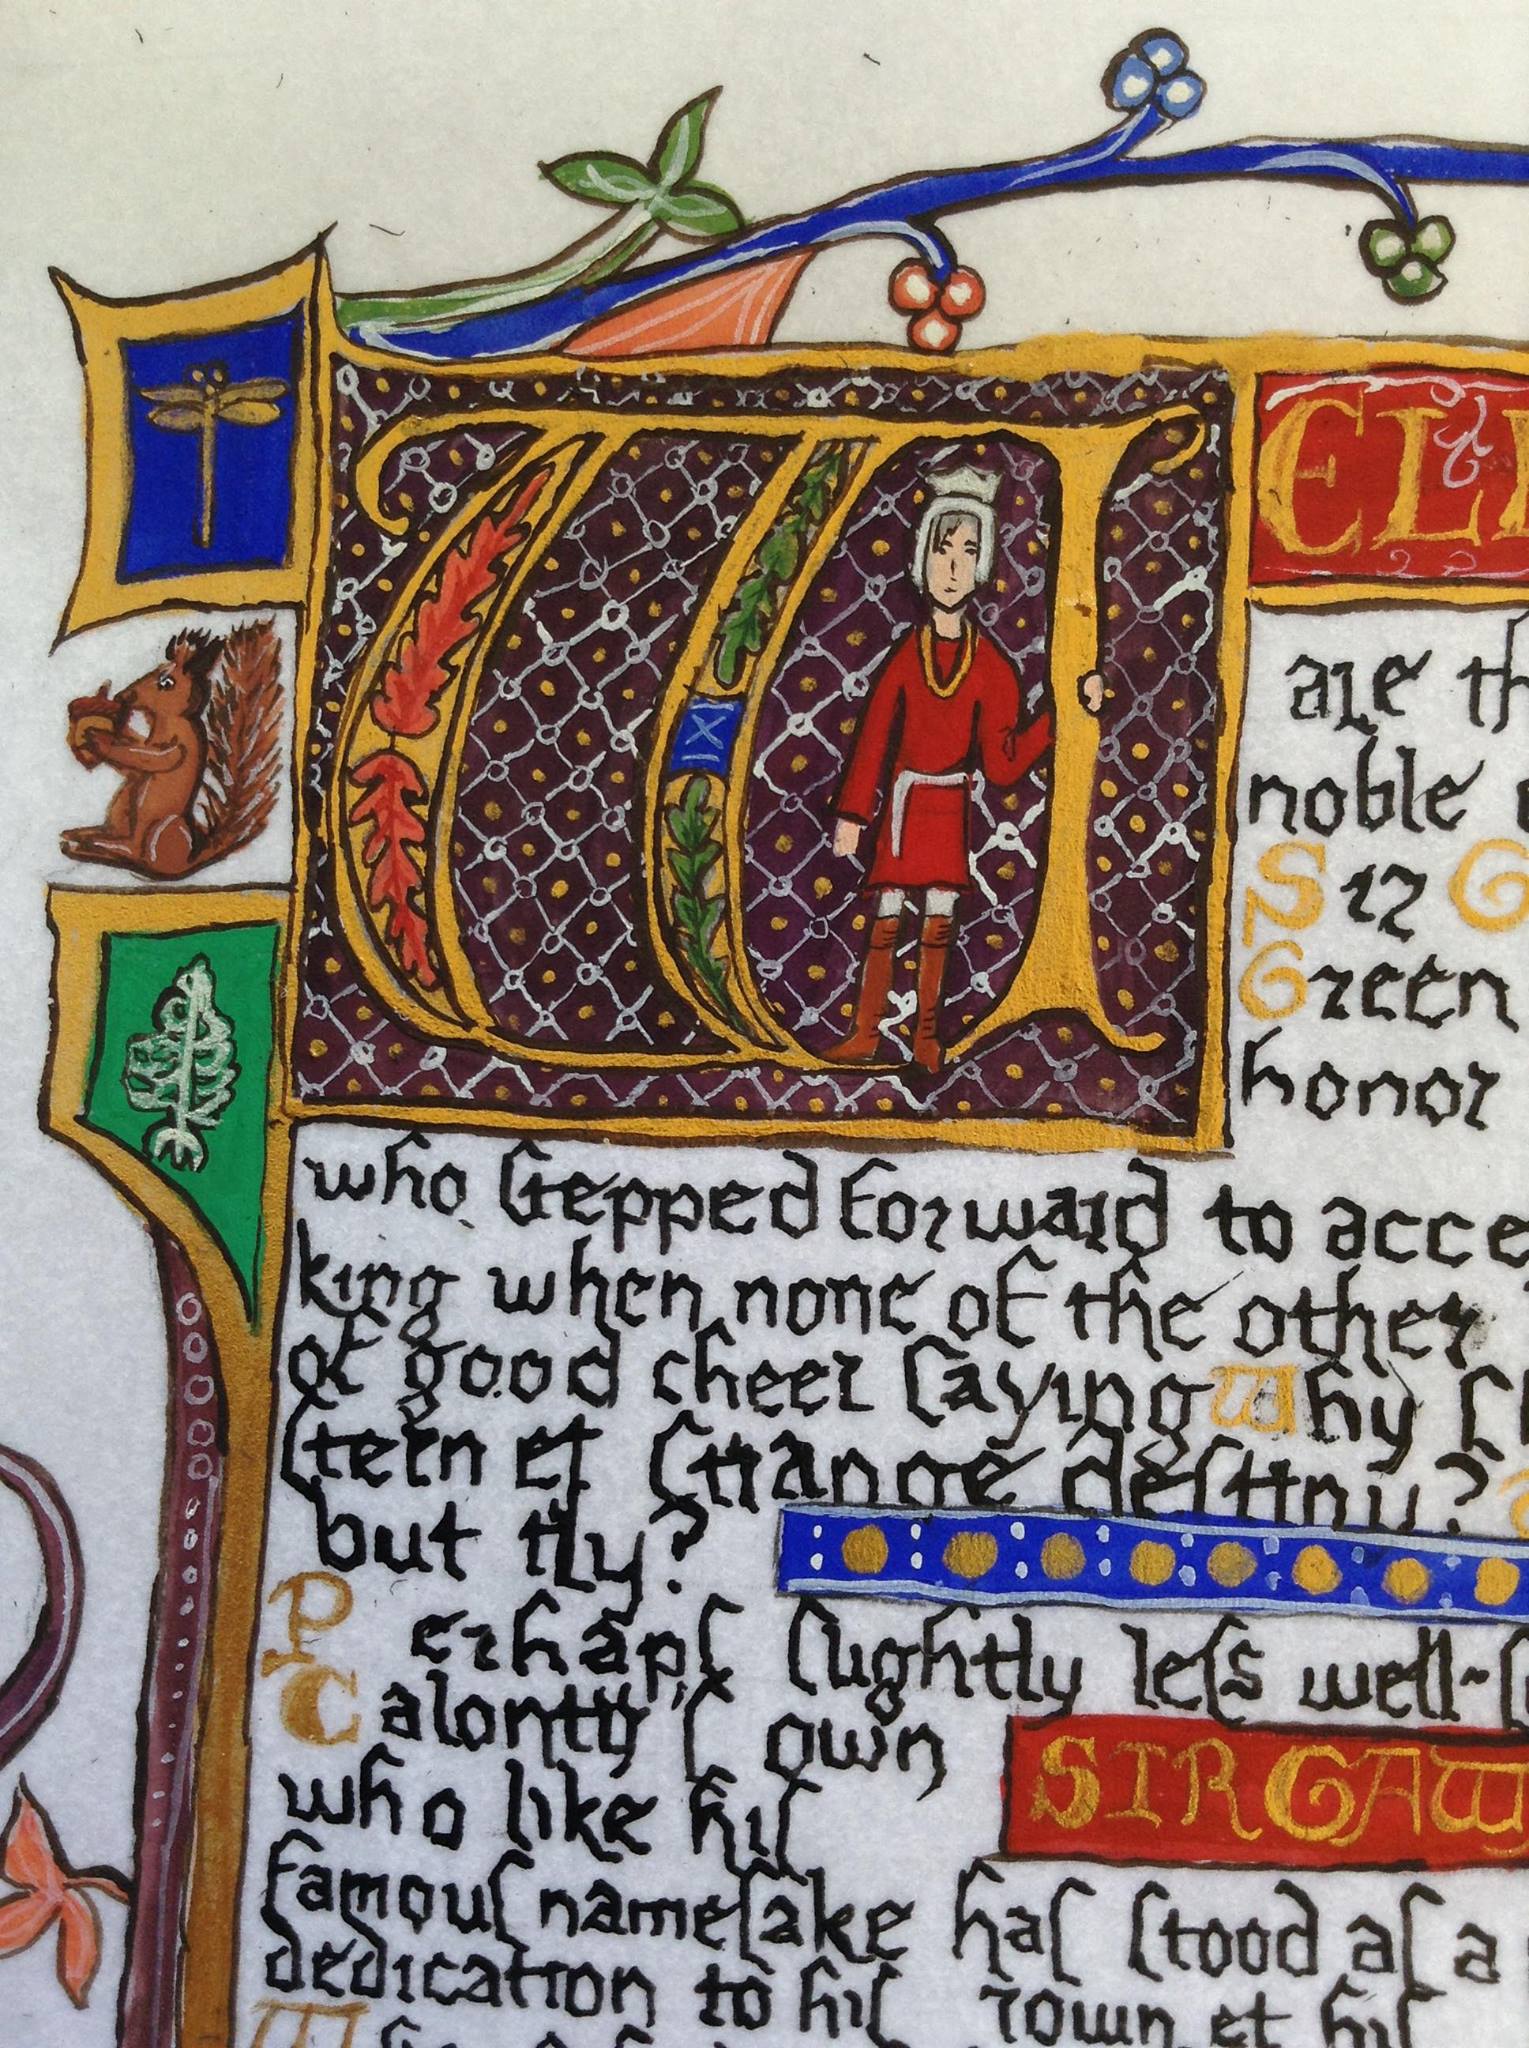 WELL
are th
noble
Sir G
Green
honor
who stepped forward to acce
king when none of the other
of good cheer saying Why sh
stern et strange destiny?
but try?
Perhaps slightly less well-s
Calontir's own
SIR GAW
who like his
famous namesake has stood as a
dedication to his crown et his